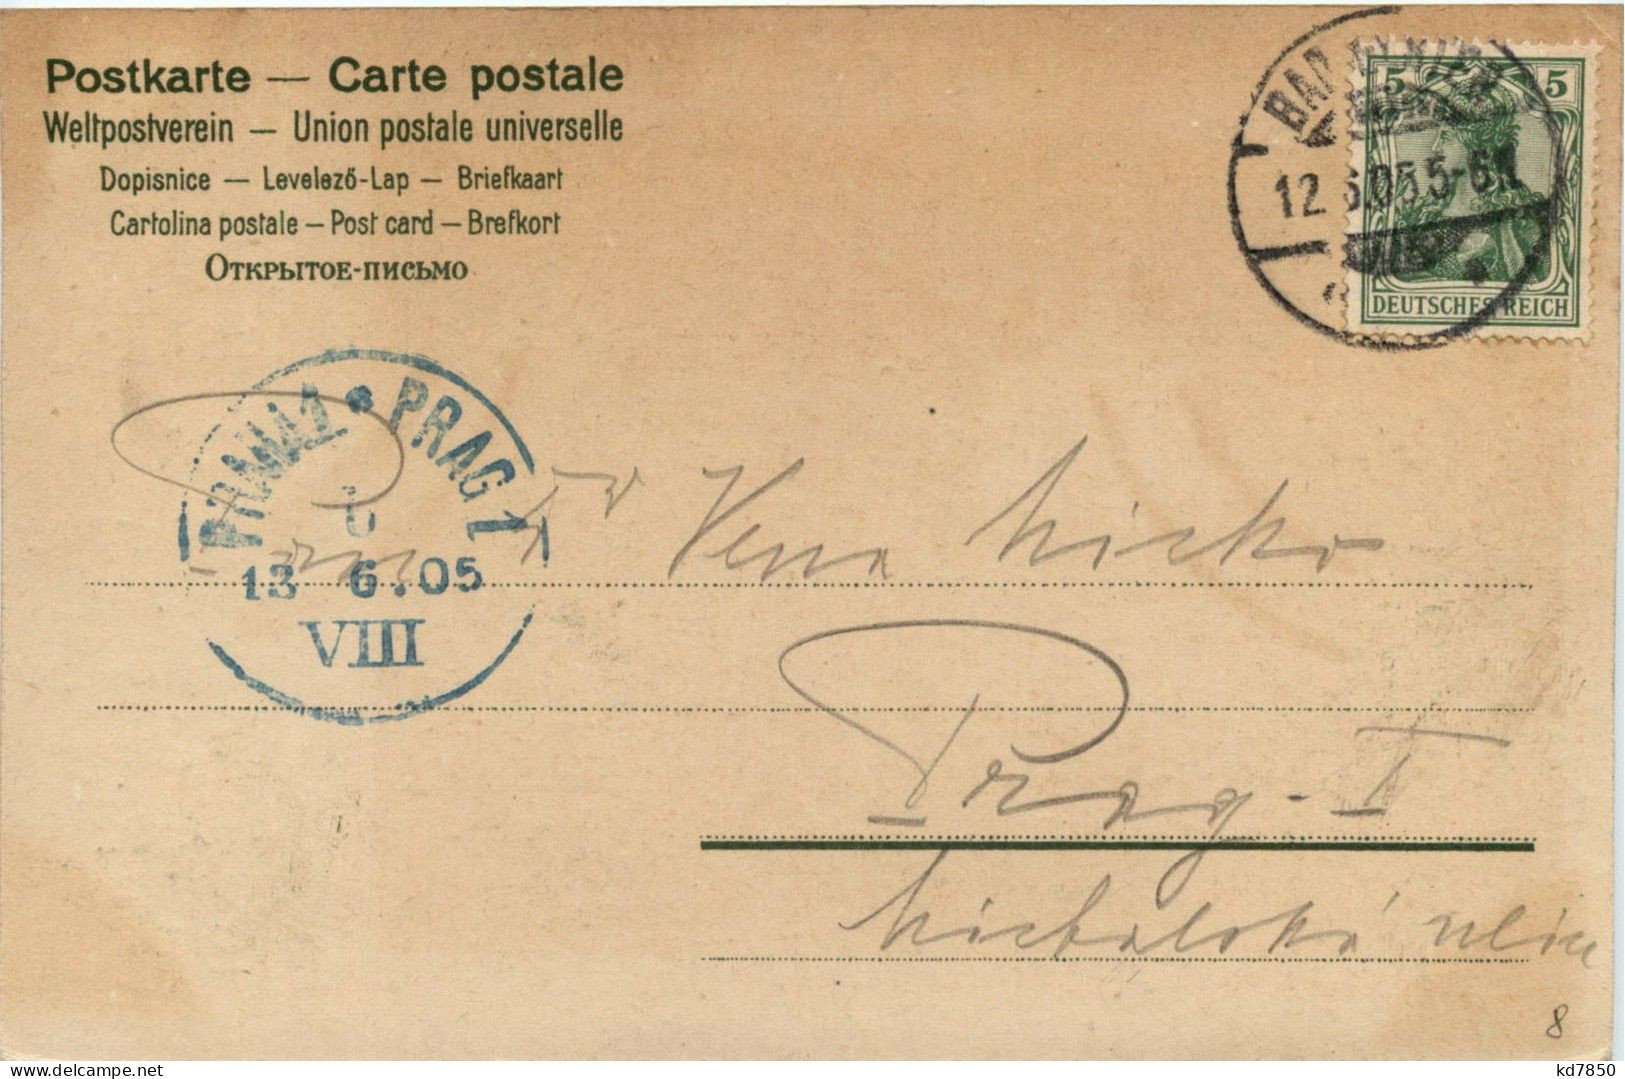 Postkarte — Carte postale
Weltpostverein — Union postale universelle
Dopisnice — Levelező-Lap — Briefkaart
Cartolina postale — Post card — Brefkort
Открытое-письмо
BAD
12 6.05 5-6N
5 5
DEUTSCHES REICH
PRAHA 1 * PRAG 1
13 6.05
VIII
Prag - I
Michalská ulice
8
kd7850